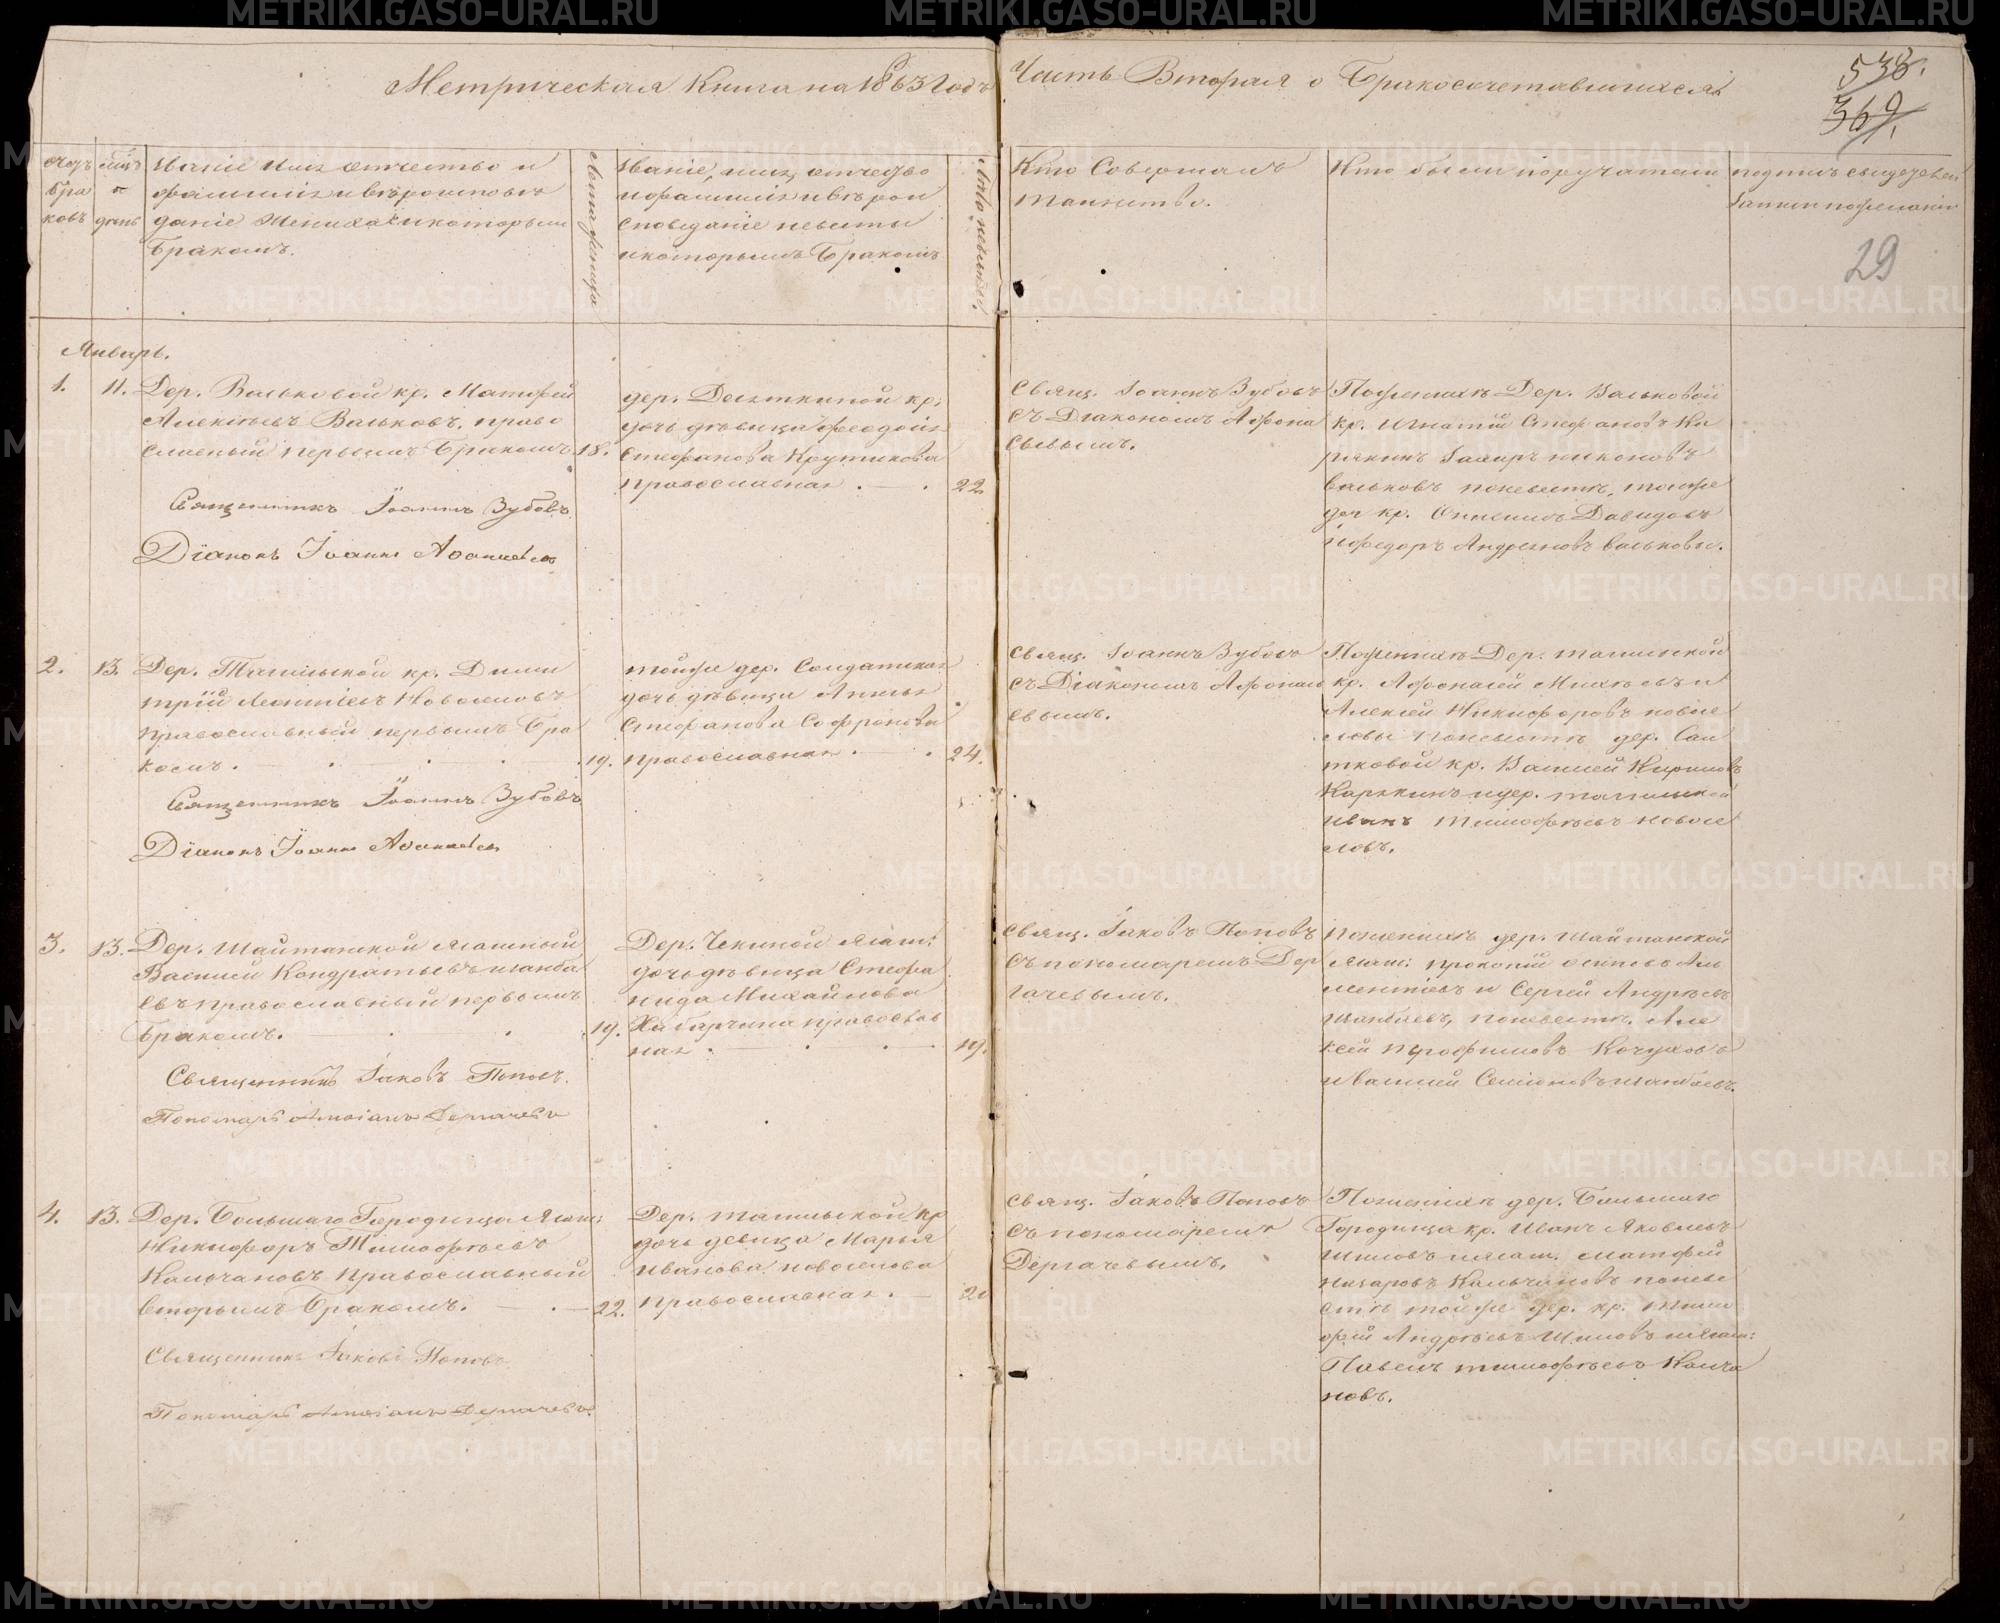 Метрическая Книга на 1863 Годъ
Часть Вторая о Бракосочетавшихся
538.
369.
29
Счетъ
бра
ковъ
мцъ
и
день
Званіе имя отчество и
фамилія и вѣроисповѣ
даніе Жениха и которымъ
Бракомъ.
Лета жениха
Званіе, имя, отчество
и фамилія и вѣрои
споведаніе невесты
и которымъ Бракомъ
Лѣта невѣсты.
Кто Совершалъ
таинство.
Кто были поручатели
подпись свидетелей
записи по желанію
Январь.
1.
11.
Дер. Вальковой кр. Матфей
Алексѣевъ Вальковъ, право
славный первымъ Бракомъ
18.
Священникъ Іоаннъ Зубовъ.
Діаконъ Іоаннъ Аѳанасьевъ
дер. Десяткиной кр.
дочь дѣвица Феодосія
Стефанова Крутикова
Православная.
22
Свящ. Іоаннъ Зубовъ
съ Діакономъ Афона
сьевымъ.
По женихѣ Дер. Вальковой
кр. Игнатій Стефановъ Ка
рякинъ Назаръ Никоновъ
Вальковъ по невестѣ, тойже
дер кр. Давидовъ
и Федоръ Андреяновъ Вальковы.
2.
13.
Дер. Тагильской кр. Дими
трій Леонтіевъ Новоселовъ
православный первымъ Бра
комъ.
19.
Священникъ Іоаннъ Зубовъ
Діаконъ Іоаннъ Аѳанасьевъ
тойже дер. Солдатская
дочь дѣвица Анисья
Стефанова Софронова
православная.
24.
Свящ. Іоаннъ Зубовъ
съ Діакономъ Афонась
евымъ.
По женихѣ Дер. Тагильской
кр. Афонасій Михѣевъ и
Алексей Никифоровъ новосе
ловы по невестѣ дер. Сал
тковой кр. Василей Кириловъ
Карякинъ и дер. тагильской
иванъ тимофѣевъ новосе
ловъ.
3.
13.
Дер. Шайтанской ясашный
Василей Кондратьевъ Шанба
евъ православный первымъ
Бракомъ.
19.
Священникъ Іаковъ Поповъ.
Пономарь Амосіанъ Дергачевъ
Дер. Чекиной ясаш:
дочь дѣвица Стефа
нида Михайлова
Хабарчина православ
ная.
19.
Свящ. Іаковъ Поповъ
съ пономаремъ Дер
гачевымъ.
По женихѣ дер. Шайтанской
ясаш: прокопій осиповъ Аль
ментіевъ и Сергей Андрѣевъ
Шанбаевъ, по невестѣ. Але
ксей Трофимовъ Кочуховъ
и Василей Семіоновъ Шанбаевъ.
4.
13.
Дер. Большаго Городища ясаш:
Никифоръ Тимофѣевъ
Колчановъ православный
вторымъ Бракомъ.
22.
Священникъ Іаковъ Поповъ
Пономарь Амосіанъ Дергачевъ.
Дер. тагильской кр
дочь девица Марья
иванова новоселова
православная.
20
Свящ. Іаковъ Поповъ
съ пономаремъ
Дергачевымъ.
По женихѣ дер. Большаго
Городища кр. Иванъ Яковлевъ
Шиловъ и ясаш. Матфей
Назаровъ Колчановъ по неве
стѣ тойже дер. кр. тимо
фей Андрѣевъ Шиловъ и ясаш:
Павелъ тимофѣевъ Колча
новъ.
METRIKI.GASO-URAL.RU